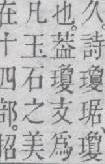 久。詩瓊琚瓊
也。葢瓊支爲
凡玉石之美
在十四部。招